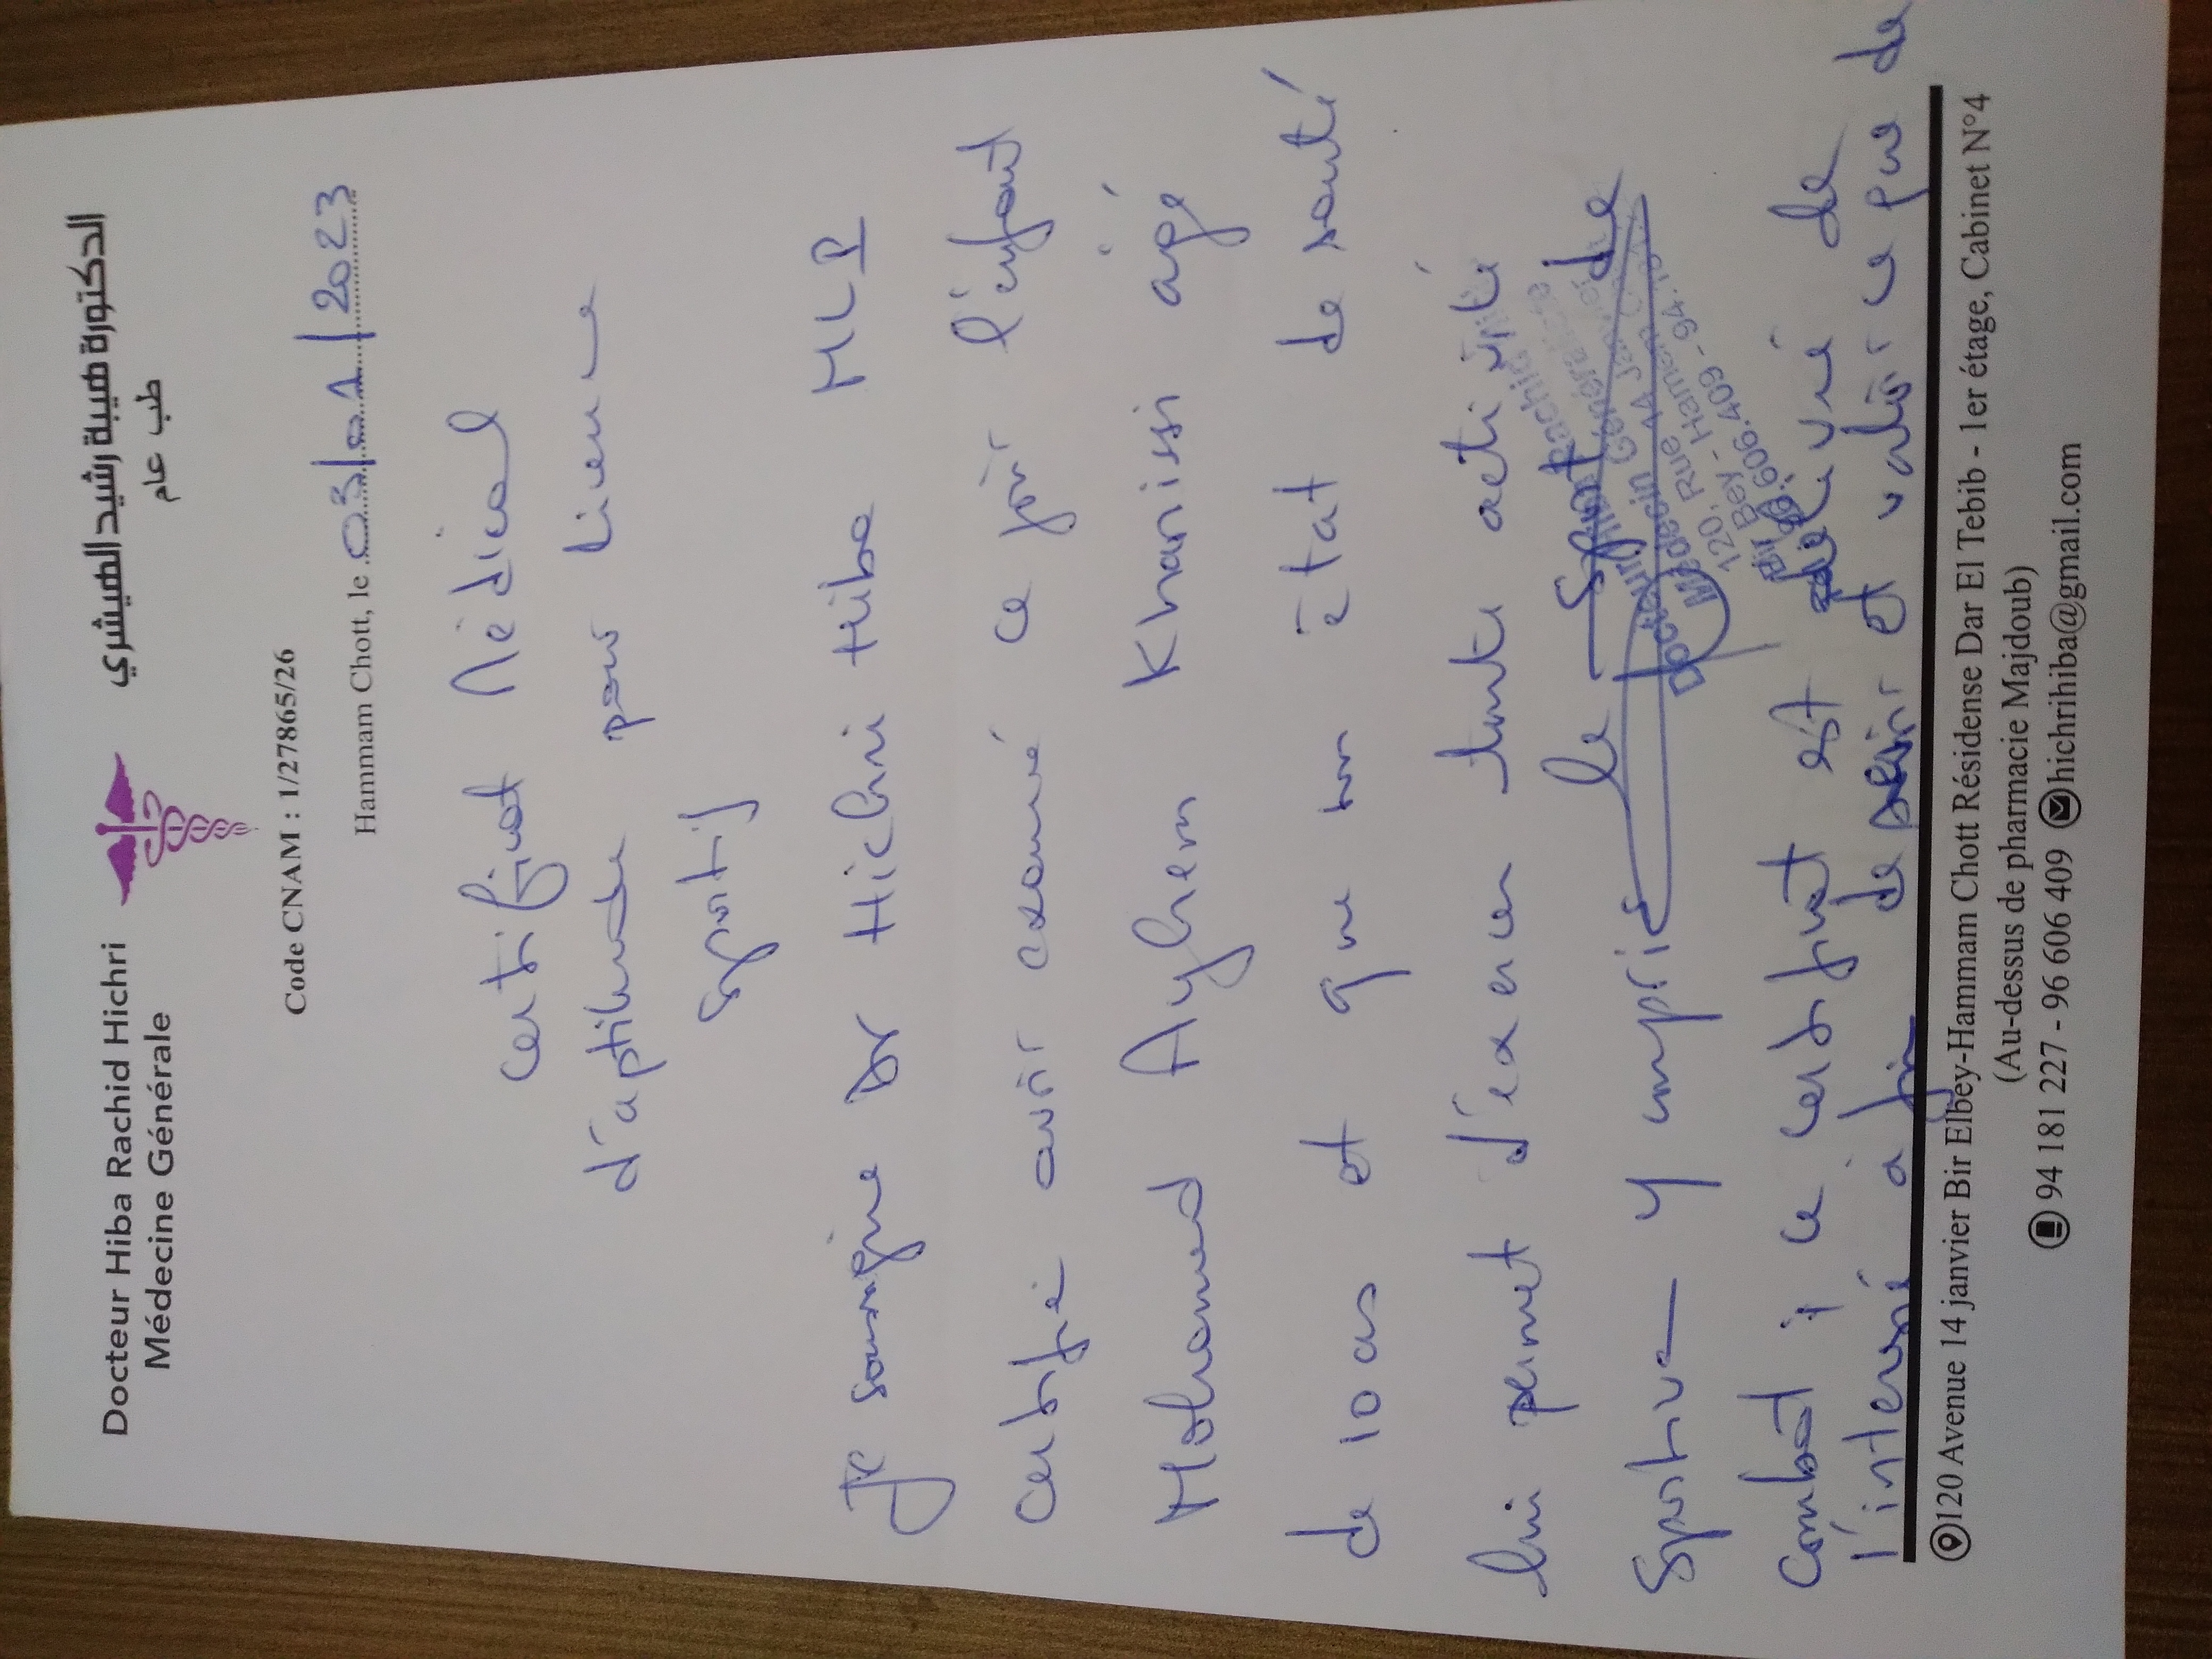 Docteur Hiba Rachid Hichri
Médecine Générale
الدكتورة هيبة رشيد الهيشري
طب عام
Code CNAM : 1/27865/26
Hammam Chott, le 03/01/2023
Certificat Médical
d'aptitude pour licence
sportif
Je soussigne Dr Hichri Hiba MLP
certifie avoir examiné ce jour l'enfant
Mohamed Ayhem Khanissi agé
de 10 ans et que son état de santé
lui permet d'exercer toute activité
Sportive y compris le sport de
Combat ; ce certificat est délivré de
l'interessé à fin de servir et valoir ce que de
Docteur Rachid
Médecin Générale
120, Rue 14 Janvier
Bir Bey - Hammam
96.606.409 - 94.18
120 Avenue 14 janvier Bir Elbey-Hammam Chott Résidense Dar El Tebib - 1er étage, Cabinet N°4
(Au-dessus de pharmacie Majdoub)
94 181 227 - 96 606 409 hichrihiba@gmail.com